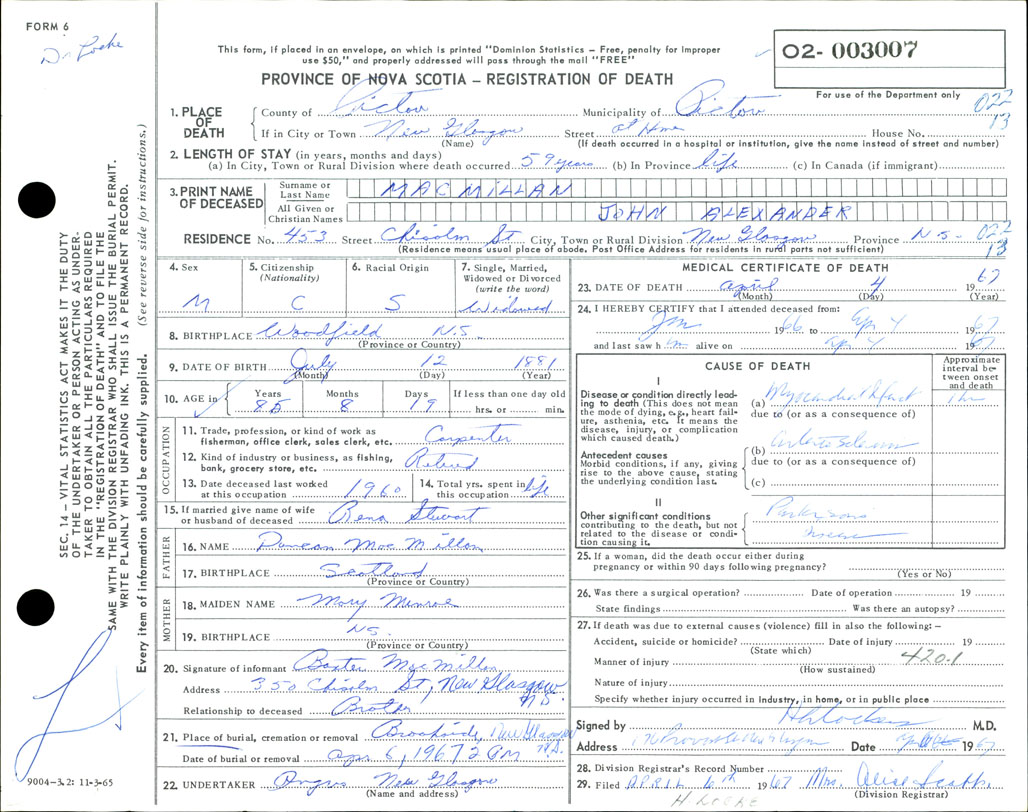 FORM 6
Dr Locke
This form, if placed in an envelope, on which is printed "Dominion Statistics – Free, penalty for improper
use $50," and properly addressed will pass through the mail "FREE"
PROVINCE OF NOVA SCOTIA – REGISTRATION OF DEATH
02- 003007
For use of the Department only
022
13
1. PLACE OF DEATH
County of Pictou Municipality of Pictou
If in City or Town New Glasgow Street at Home House No.
(Name) (If death occurred in a hospital or institution, give the name instead of street and number)
2. LENGTH OF STAY (in years, months and days)
(a) In City, Town or Rural Division where death occurred 59 years (b) In Province life (c) In Canada (if immigrant)
3. PRINT NAME OF DECEASED
Surname or Last Name MACMILLAN
All Given or Christian Names JOHN ALEXANDER
RESIDENCE No. 453 Street Chisolm St City, Town or Rural Division New Glasgow Province N S- 022
13
(Residence means usual place of abode. Post Office Address for residents in rural parts not sufficient)
4. Sex M
5. Citizenship (Nationality) C
6. Racial Origin S
7. Single, Married, Widowed or Divorced (write the word) Widowed
8. BIRTHPLACE Woodfield N.S.
(Province or Country)
9. DATE OF BIRTH July 12 1881
(Month) (Day) (Year)
10. AGE in Years 85 Months 8 Days 19 If less than one day old
hrs. or min.
OCCUPATION
11. Trade, profession, or kind of work as fisherman, office clerk, sales clerk, etc. Carpenter
12. Kind of industry or business, as fishing, bank, grocery store, etc. Retired
13. Date deceased last worked at this occupation 1960
14. Total yrs. spent in this occupation life
15. If married give name of wife or husband of deceased Rena Stewart
FATHER
16. NAME Duncan MacMillan
17. BIRTHPLACE Scotland
(Province or Country)
MOTHER
18. MAIDEN NAME Mary Munroe
19. BIRTHPLACE NS.
(Province or Country)
20. Signature of informant Baxter MacMillan
Address 350 Chisolm St, New Glasgow N.S.
Relationship to deceased Brother
21. Place of burial, cremation or removal Brookside, New Glasgow N.S.
Date of burial or removal apr 6, 1967 2 PM
22. UNDERTAKER Angus New Glasgow
(Name and address)
MEDICAL CERTIFICATE OF DEATH
23. DATE OF DEATH april 4 1967
(Month) (Day) (Year)
24. I HEREBY CERTIFY that I attended deceased from:
Jan 1966 to Apr 4 1967
and last saw him alive on Apr 4 1967
CAUSE OF DEATH
Approximate interval between onset and death
I
Disease or condition directly leading to death (This does not mean the mode of dying, e.g., heart failure, asthenia, etc. It means the disease, injury, or complication which caused death.)
(a) Myocardial Infarct 1 hr
due to (or as a consequence of)
Antecedent causes
Morbid conditions, if any, giving rise to the above cause, stating the underlying condition last.
(b)
due to (or as a consequence of)
(c)
II
Other significant conditions contributing to the death, but not related to the disease or condition causing it.
Parkinsons
25. If a woman, did the death occur either during pregnancy or within 90 days following pregnancy?
(Yes or No)
26. Was there a surgical operation? Date of operation 19
State findings Was there an autopsy?
27. If death was due to external causes (violence) fill in also the following: –
Accident, suicide or homicide? Date of injury 19
(State which)
Manner of injury 420.1
(How sustained)
Nature of injury
Specify whether injury occurred in industry, in home, or in public place
Signed by M.D.
Address Date 1967
28. Division Registrar's Record Number
29. Filed APRIL 6th 1967 Mrs.
(Division Registrar)
H LOCKE
SEC. 14 – VITAL STATISTICS ACT MAKES IT THE DUTY
OF THE UNDERTAKER OR PERSON ACTING AS UNDER-
TAKER TO OBTAIN ALL THE PARTICULARS REQUIRED
IN THE "REGISTRATION OF DEATH" AND TO FILE THE
SAME WITH THE DIVISION REGISTRAR WHO SHALL ISSUE THE BURIAL PERMIT.
WRITE PLAINLY WITH UNFADING INK. THIS IS A PERMANENT RECORD.
Every item of information should be carefully supplied. (See reverse side for instructions.)
9004-3.2: 11-3-65